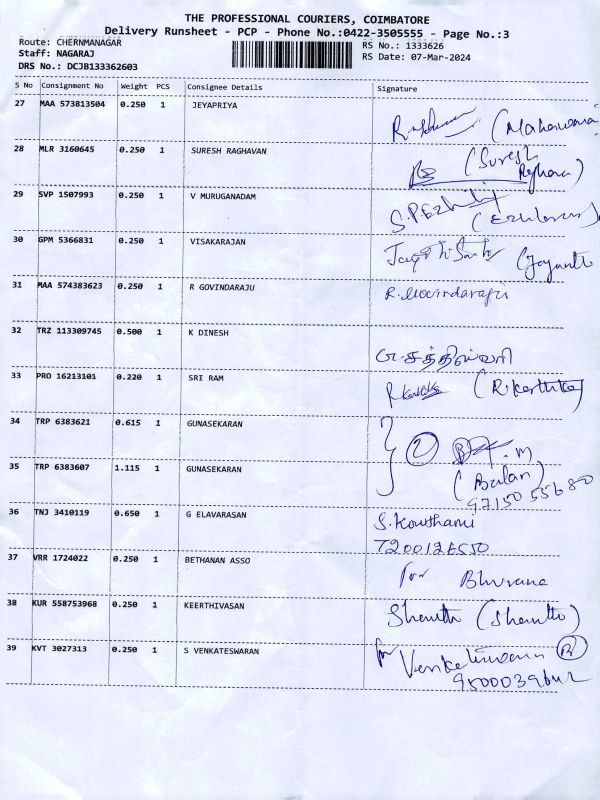 THE PROFESSIONAL COURIERS, COIMBATORE
Delivery Runsheet - PCP - Phone No.:0422-3505555 - Page No.:3
Route: CHERNMANAGAR RS No.: 1333626
Staff: NAGARAJ RS Date: 07-Mar-2024
DRS No.: DCJB133362603
S No Consignment No Weight PCS Consignee Details Signature
27 MAA 573813504 0.250 1 JEYAPRIYA
28 MLR 3160645 0.250 1 SURESH RAGHAVAN (Suresh
29 SVP 1507993 0.250 1 V MURUGANADAM
30 GPM 5366831 0.250 1 VISAKARAJAN
31 MAA 574383623 0.250 1 R GOVINDARAJU R. Govindaraju
32 TRZ 113309745 0.500 1 K DINESH
33 PRO 16213101 0.220 1 SRI RAM
34 TRP 6383621 0.615 1 GUNASEKARAN 2
35 TRP 6383607 1.115 1 GUNASEKARAN (Balan)
97150 55680
36 TNJ 3410119 0.650 1 G ELAVARASAN S. Kowthami
37 VRR 1724022 0.250 1 BETHANAN ASSO for Bhuvana
38 KUR 558753968 0.250 1 KEERTHIVASAN
39 KVT 3027313 0.250 1 S VENKATESWARAN for